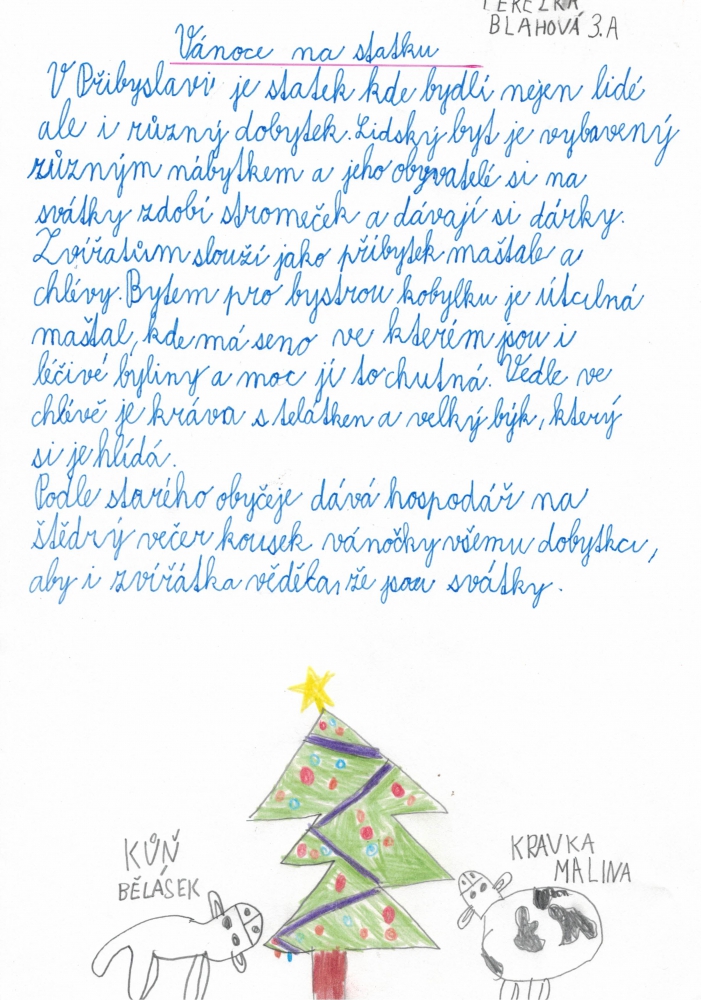 TEREZKA
BLAHOVÁ 3.A
Vánoce na statku
V Přibyslavi je statek kde bydlí nejen lidé
ale i různý dobytek. Lidský byt je vybavený
různým nábytkem a jeho obyvatelé si na
svátky zdobí stromeček a dávají si dárky.
Zvířatům slouží jako příbytek maštale a
chlévy. Bytem pro bystrou kobylku je útulná
maštal, kde má seno ve kterém jsou i
léčivé byliny a moc jí to chutná. Vedle ve
chlévě je kráva s telátken a velký býk, který
si je hlídá.
Podle starého obyčeje dává hospodář na
štědrý večer kousek vánočky všemu dobytku,
aby i zvířátka věděla, že jsou svátky.
KŮŇ
BĚLÁSEK
KRAVKA
MALINA